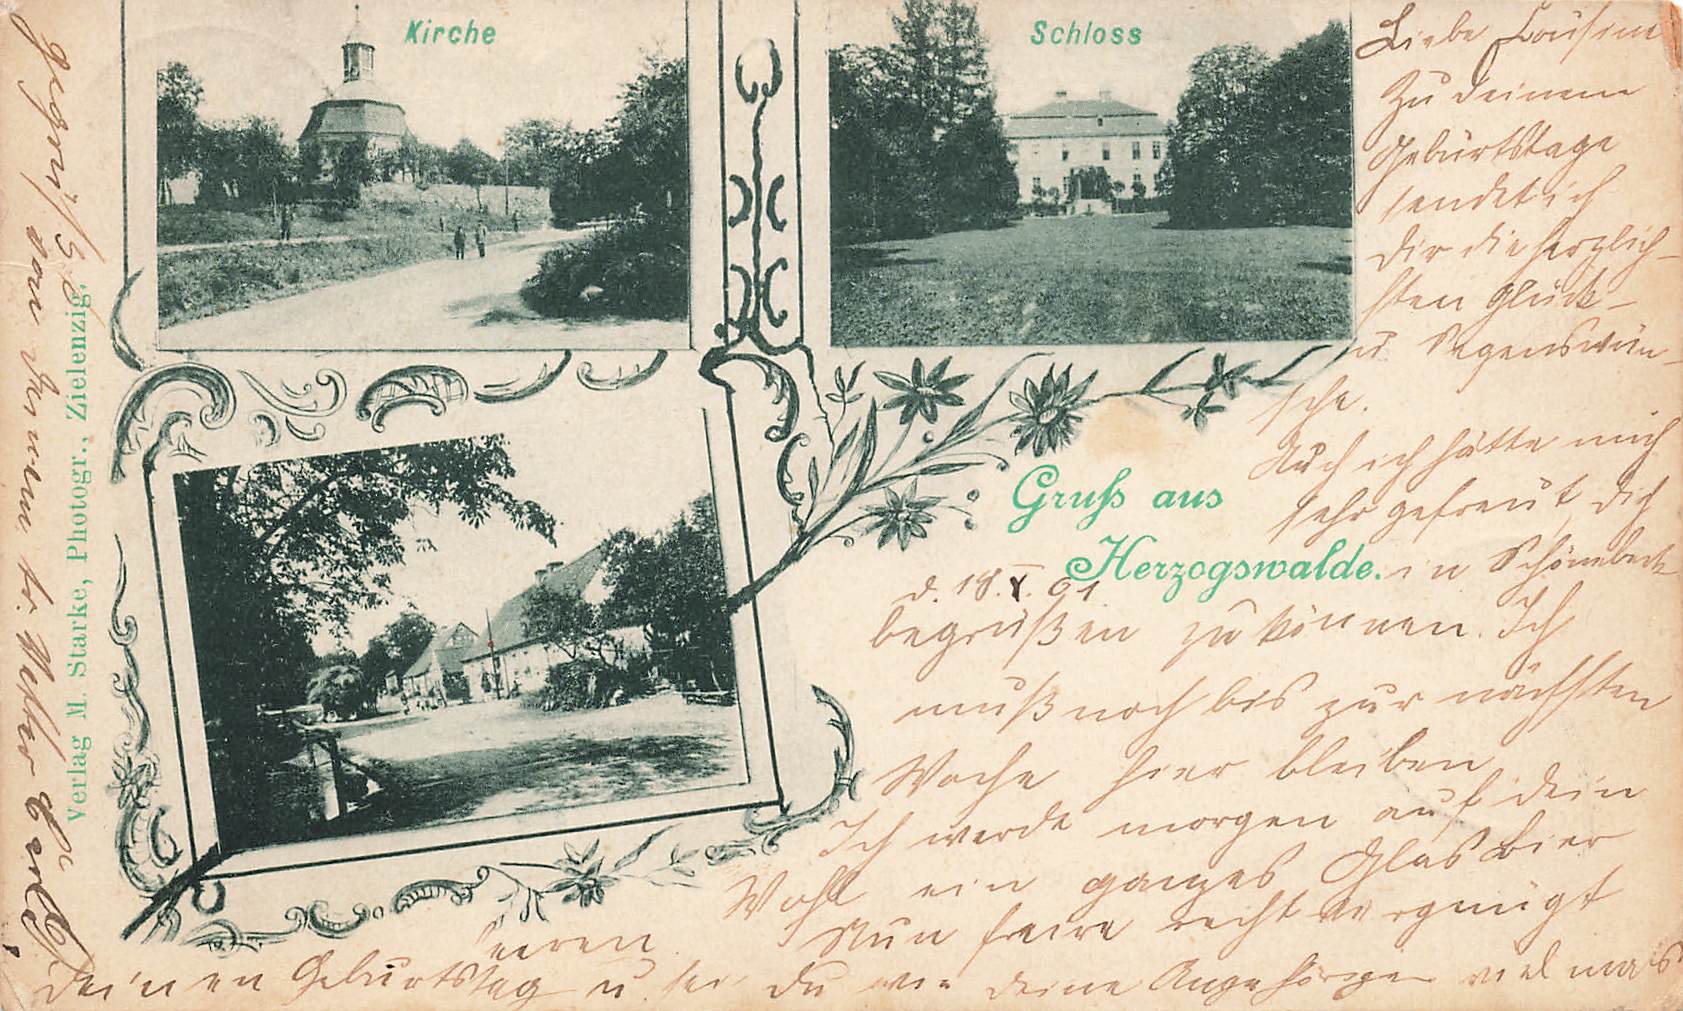 Kirche
Schloss
Gruß aus
Herzogswalde.
Verlag M. Starke, Photogr., Zielenzig.
d. 18. X. 01
Liebe Cousine
Zu deinem
Geburtstage
sendet ich
dir die herzlich-
sten Glück-
u. Segenswün-
sche.
Auch ich hätte mich
sehr gefreut, dich
in Schönebeck
begrüßen zu können. Ich
muß noch bis zur nächsten
Woche hier bleiben
Ich werde morgen auf dein
Wohl ein ganzes Glas Bier
leeren
Nun feire recht vergnügt
deinen Geburtstag u. sei du wie deine Angehörigen viel mals
gegrüßt
von deinem